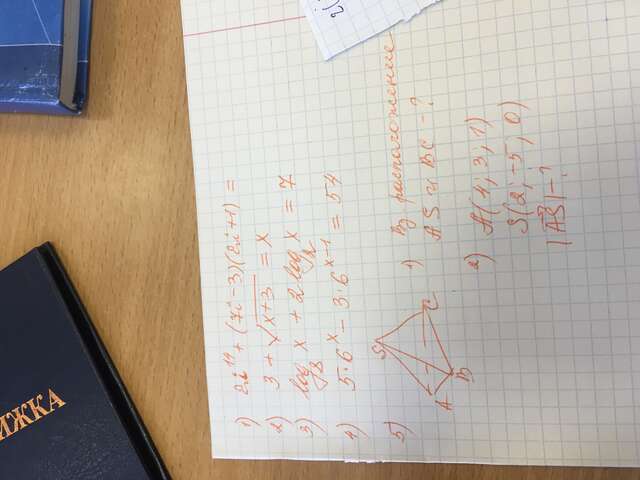 ИЖКА
1) 2i¹⁹ + (7i - 3)(2i + 1) =
2) 3 + √(x+3) = x
3) log₈ x + 2 log₂ x = 7
4) 5·6ˣ - 3·6ˣ⁻¹ = 54
5)
S
A
B
C
1) Вз расположение
AS и BC - ?
2) A(4; 3; 1)
S(2; -5; 0)
|AS⃗| - ?